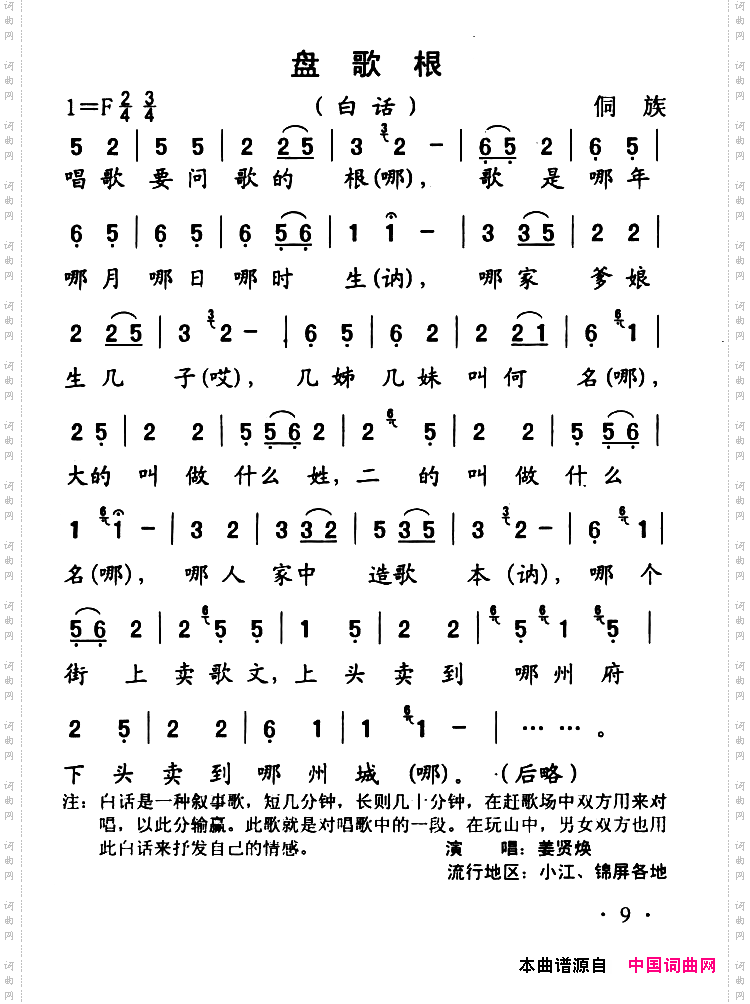 盘歌根
1=F 2/4 3/4 （白话） 侗族
5 2 | 5 5 | 2 2 5 | 3 3 2 - | 6 5 2 | 6 5 |
唱歌要问歌的根(哪)，歌是哪年
6 5 | 6 5 | 6 5 6 | 1 1 - | 3 3 5 | 2 2 |
哪月哪日哪时生(讷)，哪家爹娘
2 2 5 | 3 3 2 - | 6 5 | 6 2 | 2 2 1 | 6 6 1 |
生几子(哎)，几姊几妹叫何名(哪)，
2 5 | 2 2 | 5 5 6 2 | 2 6 5 | 2 2 | 5 5 6 |
大的叫做什么姓，二的叫做什么
1 6 1 - | 3 2 | 3 3 2 | 5 3 5 | 2 6 2 - | 6 6 1 |
名(哪)，哪人家中造歌本(讷)，哪个
5 6 2 | 2 6 5 5 | 1 5 | 2 2 | 6 5 6 1 | 6 5 5 |
街上卖歌文，上头卖到哪州府
2 5 | 2 2 | 6 1 | 1 6 1 - | …… 。
下头卖到哪州城(哪)。（后略）
注：白话是一种叙事歌，短几分钟，长则几十分钟，在赶歌场中双方用来对
唱，以此分输赢。此歌就是对唱歌中的一段。在玩山中，男女双方也用
此白话来抒发自己的情感。 演 唱：姜贤焕
流行地区：小江、锦屏各地
·9·
本曲谱源自 中国词曲网
词曲网